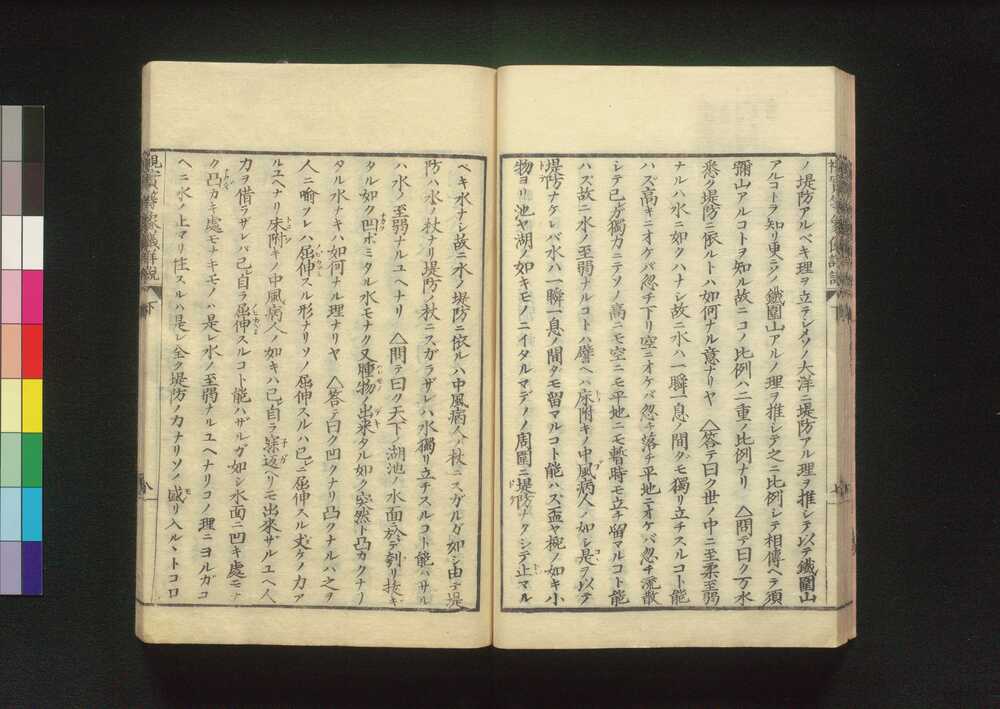 ノ堤防アルベキ理ヲ立テシメソノ大洋ニ堤防アル理ヲ推シテ以テ鐵圍山
アルコトヲ知リ更ニソノ鐵圍山アルノ理ヲ推シテ之ニ比例シテ相傳ヘラ須
彌山アルコトヲ知ル故ニコノ比例ハ二重ノ比例ナリ △問テ曰ク万水
悉ク堤防ニ依ルトハ如何ナル意ナリヤ △答テ曰ク世ノ中ニ至柔至弱
ナルハ水ニ如クハナシ故ニ水ハ一瞬一息ノ間ダモ獨リ立チスルコト能
ハズ高キニオケバ忽チ下リ空ニオケバ忽チ落チ平地ニオケバ忽チ流散
シテ己ガ獨力ニテソノ高ニモ空ニモ平地ニモ暫時モ立チ留マルコト能
ハズ故ニ水ノ至弱ナルコトハ譬ヘバ床附キノ中風病人ノ如シ是ヲ以テ
堤防ナケレバ水ハ一瞬一息ノ間ダモ留マルコト能ハズ盃ヤ椀ノ如キ小
物ヨリ池ヤ湖ノ如キモノニイタルマデソノ周圍ニ堤防ナクシテ止マル
ベキ水ナシ故ニ水ノ堤防ニ依ルハ中風病人ノ杖ニスガルガ如シ由テ堤
防ハ水ノ杖ナリ堤防ノ杖ニスガラザレハ水獨リ立チスルコト能ハサル
ハ水ノ至弱ナルユヘナリ △問テ曰ク天下ノ湖池ノ水面ニ於テ刳リ抜キ
タル如ク凹ボミタル水モナク又腫物ノ出来タル如ク突然ト凸カクナリ
タル水ナキハ如何ナル理ナリヤ △答テ曰ク凹クナリ凸クナルハ之ヲ
人ニ喩フレハ屈伸スル形ナリソノ屈伸スルハ己ニ屈伸スル丈ケノ力ア
ルユヘナリ床附キノ中風病人ノ如キハ己レ自ラ寐返ヘリモ出来ザルユヘ人
力ヲ借ラザレバ己レ自ラ屈伸スルコト能ハザルガ如シ水面ニ凹キ處モナ
ク凸カキ處モナキモノハ是レ水ノ至弱ナルユヘナリコノ理ニヨルガユ
ヘニ水ノ上ヲリ性スルハ是レ全ク堤防ノ力ナリソノ盛リ入ルヽトコロ
下